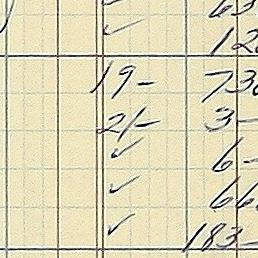 ✓ 63
✓ 12
19- 73
21- 3-
✓ 6-
✓ 66
✓ 183-